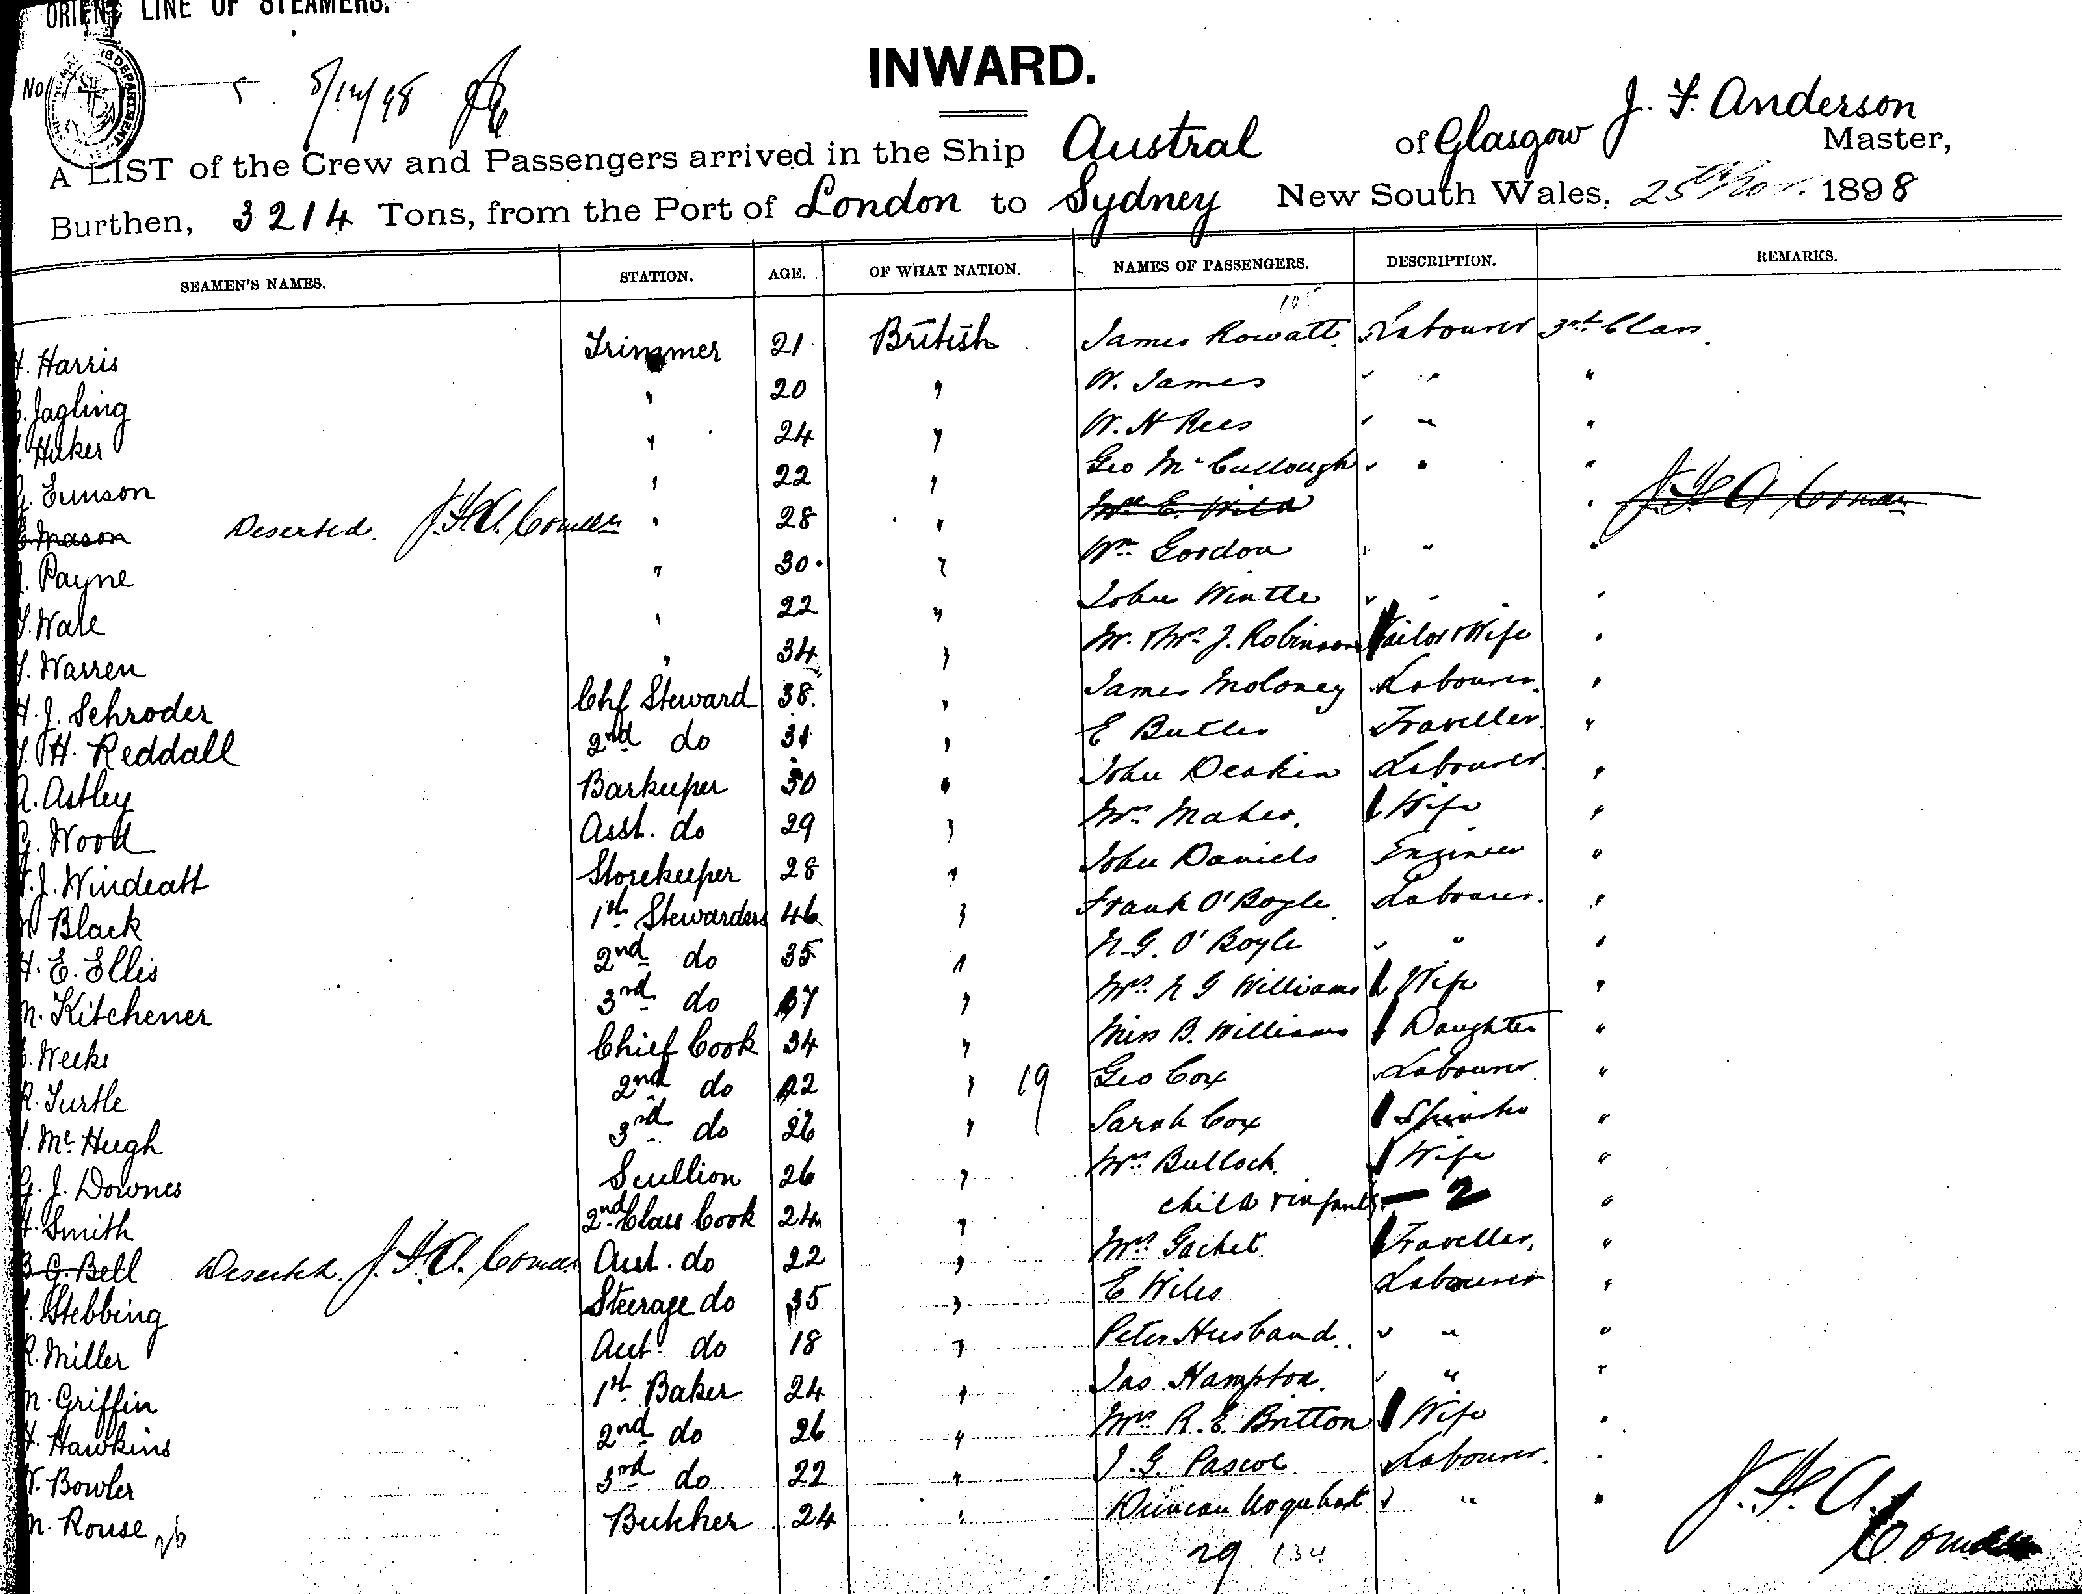 ORIENT LINE OF STEAMERS.
INWARD.
No
5/12/98
J. F. Anderson
A LIST of the Crew and Passengers arrived in the Ship Austral of Glasgow Master,
Burthen, 3214 Tons, from the Port of London to Sydney New South Wales, 25th Nov. 1898
SEAMEN'S NAMES. STATION. AGE. OF WHAT NATION. NAMES OF PASSENGERS. DESCRIPTION. REMARKS.
H. Harris Trimmer 21 British James Rowatt Labourer 3rd Class
Jagling " 20 " W. James " " "
Huker " 24 " W. H Rees " " "
Eunson " 22 " Geo McCullough " " "
Mason Deserted. J. F. A. Comdr " 28 " Mr E. Wild " J. F. A Comdr
Payne " 30 " Wm Gordon " " "
Wale " 22 " John Wintle " " "
Warren " 34 " Mr. & Mrs J. Robinson Tailor & Wife "
H. J. Schroder Chf Steward 38 " James Moloney Labourer "
H. Reddall 2nd do 31 " E Butler Traveller "
A. Astley Barkeeper 30 " John Deakin Labourer "
G. Wood Asst. do 29 " Mrs Maher Wife "
J. Windeatt Storekeeper 28 " John Daniels Engineer "
Black 1st Stewardess 46 " Frank O'Boyle Labourer "
H. E. Ellis 2nd do 35 " N. G. O'Boyle " " "
M. Kitchener 3rd do 37 " Mrs N G Williams Wife "
Weeks Chief Cook 34 " Miss B. Williams Daughter "
R. Turtle 2nd do 22 " 19 Geo Cox Labourer "
McHugh 3rd do 26 " Sarah Cox Spinster "
G. J. Downes Scullion 26 " Mrs Bulloch Wife "
H. Smith 2nd Class Cook 24 " child & infant - 2 "
G. Bell Deserted. J. F. A. Comdr Asst. do 22 " Mrs Gachet Traveller "
Stebbing Steerage do 35 " E Wiles Labourer "
R. Miller Asst do 18 " Peter Husband " " "
M. Griffin 1st Baker 24 " Jas Hampton " " "
H. Hawkins 2nd do 26 " Mrs R. E. Britton Wife "
W. Bowler 3rd do 22 " J. G. Pascoe Labourer "
M. Rouse Butcher 24 " Duncan Urquhart " " "
29 134
J. F. A.
Comdr